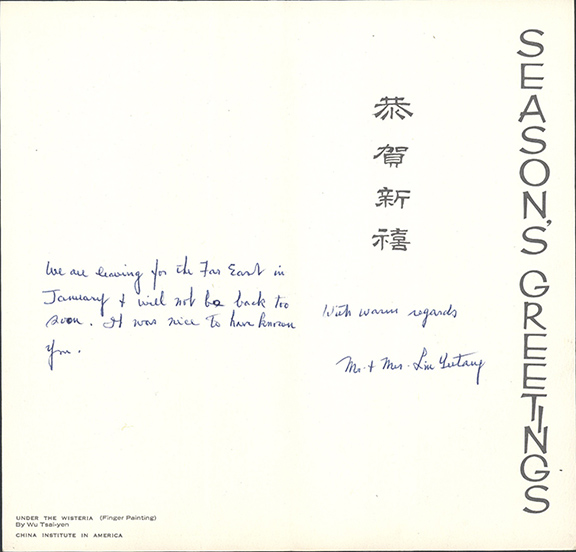 We are leaving for the Far East in
January & will not be back too
soon. It was nice to have known
you.
UNDER THE WISTERIA (Finger Painting)
By Wu Tsai-yen
CHINA INSTITUTE IN AMERICA
恭賀新禧
With warm regards
Mr. & Mrs. Lin Yutang
SEASON'S GREETINGS